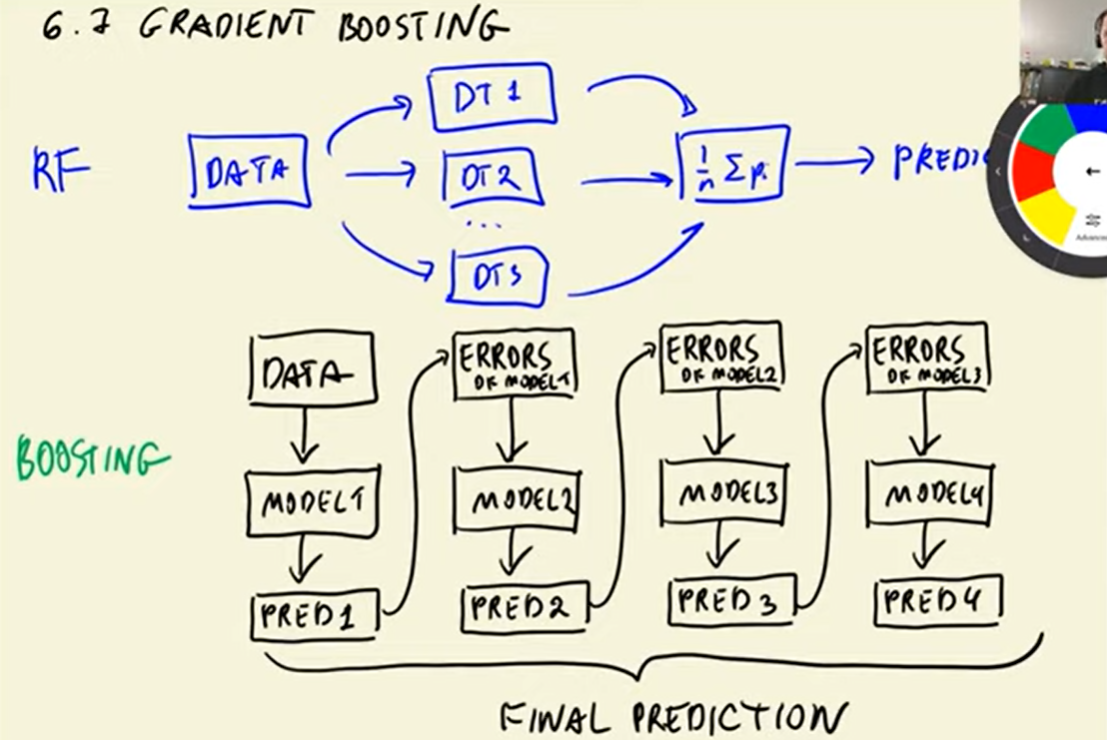 6.7 GRADIENT BOOSTING
RF
DATA
DT 1
DT2
...
DT3
1/n Σ pi
PREDIC
BOOSTING
DATA
MODEL1
PRED 1
ERRORS
OF MODEL1
MODEL2
PRED 2
ERRORS
OF MODEL2
MODEL3
PRED 3
ERRORS
OF MODEL3
MODEL4
PRED 4
FINAL PREDICTION
Advanced